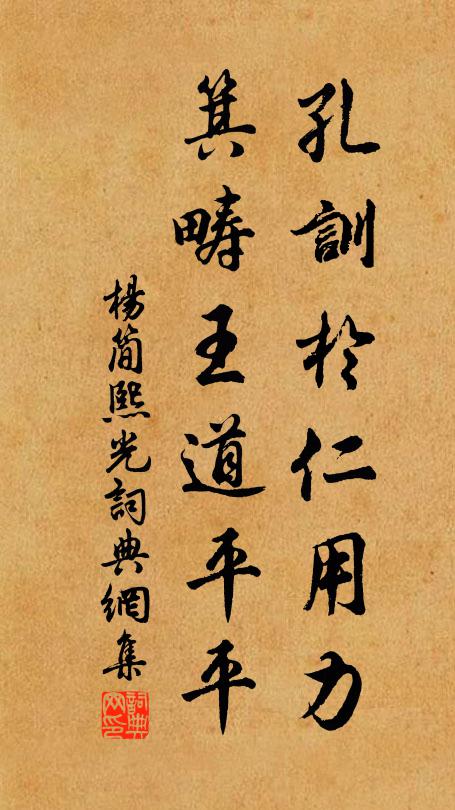 孔訓於仁用力
箕疇王道平平
楊簡熙光詞典網集
詞典网印